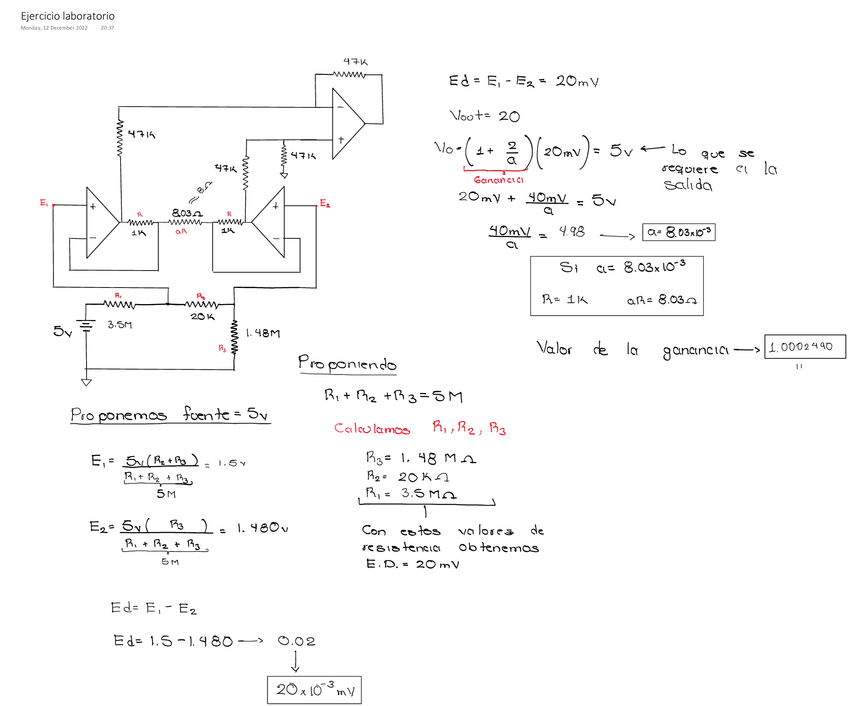 Ejercicio laboratorio
Monday, 12 December 2022 20:37
47K
47K
47K
47K
≈ 8Ω
E₁
E₂
+
-
-
+
+
-
R
8.03Ω
R
1K
aR
1K
R₁
R₂
3.5M
20K
5v
1.48M
R₃
Ed = E₁ - E₂ = 20mV
Vout = 20
Vo = (1 + 2/a)(20mV) = 5v ← Lo que se
requiere a la
salida
Ganancia
20mV + 40mV/a = 5v
40mV/a = 4.98 → a = 8.03x10⁻³
Si a = 8.03x10⁻³
R = 1K aR = 8.03Ω
Valor de la ganancia → 1.0002490
Proponiendo
R₁ + R₂ + R₃ = 5M
Calculamos R₁, R₂, R₃
R₃ = 1.48 MΩ
R₂ = 20 KΩ
R₁ = 3.5 MΩ
Con estos valores de
resistencia obtenemos
E.D. = 20 mV
Proponemos fuente = 5v
E₁ = 5v(R₂ + R₃) / R₁ + R₂ + R₃ = 1.5v
5M
E₂ = 5v( R₃ ) / R₁ + R₂ + R₃ = 1.480v
5M
Ed = E₁ - E₂
Ed = 1.5 - 1.480 → 0.02
20 x 10⁻³ mV